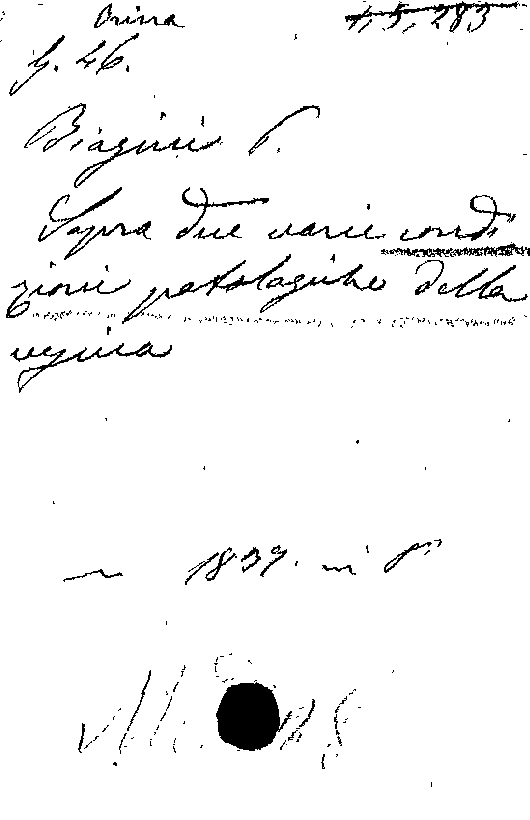 Orina
4, 5, 283
G. 46.
Biagini P.
Sopra due varie condi
zioni patologiche della
vagina
— 1839. in 8°